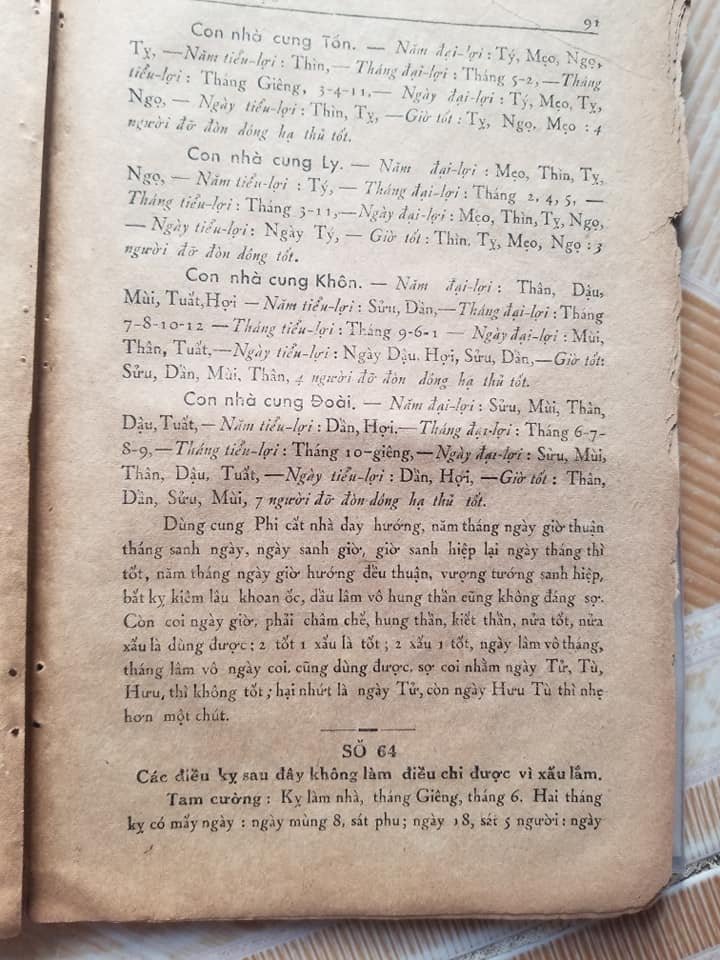 91
Con nhà cung Tốn. — Năm đại-lợi : Tý, Mẹo, Ngọ,
Tỵ, —Năm tiểu-lợi : Thìn,— Tháng đại-lợi : Tháng 5-2,—Tháng
tiểu-lợi : Tháng Giêng, 3-4-11,— Ngày đại-lợi : Tý, Mẹo, Tỵ,
Ngọ, — Ngày tiểu-lợi : Thìn, Tỵ, —Giờ tốt : Tỵ, Ngọ, Mẹo : 4
người đỡ đòn dông hạ thủ tốt.
Con nhà cung Ly. — Năm đại-lợi : Mẹo, Thìn, Tỵ,
Ngọ,— Năm tiểu-lợi : Tý, — Tháng đại-lợi : Tháng 2, 4, 5, —
Tháng tiểu-lợi : Tháng 3-11,—Ngày đại-lợi : Mẹo, Thìn, Tỵ, Ngọ,
— Ngày tiểu-lợi : Ngày Tý, — Giờ tốt : Thìn, Tỵ, Mẹo, Ngọ : 3
người đỡ đòn dông tốt.
Con nhà cung Khôn. — Năm đại-lợi : Thân, Dậu,
Mùi, Tuất,Hợi — Năm tiểu-lợi : Sửu, Dần,—Tháng đại-lợi : Tháng
7-8-10-12 — Tháng tiểu-lợi : Tháng 9-6-1 — Ngày đại-lợi : Mùi,
Thân, Tuất,—Ngày tiểu-lợi : Ngày Dậu, Hợi, Sửu, Dần,—Giờ tốt:
Sửu, Dần, Mùi, Thân, 4 người đỡ đòn dông hạ thủ tốt.
Con nhà cung Đoài. — Năm đại-lợi : Sửu, Mùi, Thân,
Dậu,Tuất,— Năm tiểu-lợi : Dần, Hợi.—Tháng đại-lợi : Tháng 6-7-
8-9,—Tháng tiểu-lợi : Tháng 10-giêng,—Ngày đại-lợi : Sửu, Mùi,
Thân, Dậu, Tuất, —Ngày tiểu-lợi : Dần, Hợi, —Giờ tốt : Thân,
Dần, Sửu, Mùi, 7 người đỡ đòn dông hạ thủ tốt.
Dùng cung Phi cất nhà day hướng, năm tháng ngày giờ thuận
tháng sanh ngày, ngày sanh giờ, giờ sanh hiệp lại ngày tháng thì
tốt, năm tháng ngày giờ hướng đều thuận, vượng tướng sanh hiệp,
bất kỵ kiêm lâu khoan ốc, dầu lâm vô hung thần cũng không đáng sợ.
Còn coi ngày giờ, phải châm chế, hung thần, kiết thần, nửa tốt, nửa
xấu là dùng được; 2 tốt 1 xấu là tốt ; 2 xấu 1 tốt, ngày lâm vô tháng,
tháng lâm vô ngày coi, cũng dùng được, sợ coi nhằm ngày Tử, Tù,
Hưu, thì không tốt ; hại nhứt là ngày Tử, còn ngày Hưu Tù thì nhẹ
hơn một chút.
SỐ 64
Các điều kỵ sau đây không làm điều chi được vì xấu lắm.
Tam cường : Kỵ làm nhà, tháng Giêng, tháng 6. Hai tháng
kỵ có mấy ngày : ngày mùng 8, sát phu ; ngày 18, sát 5 người : ngày